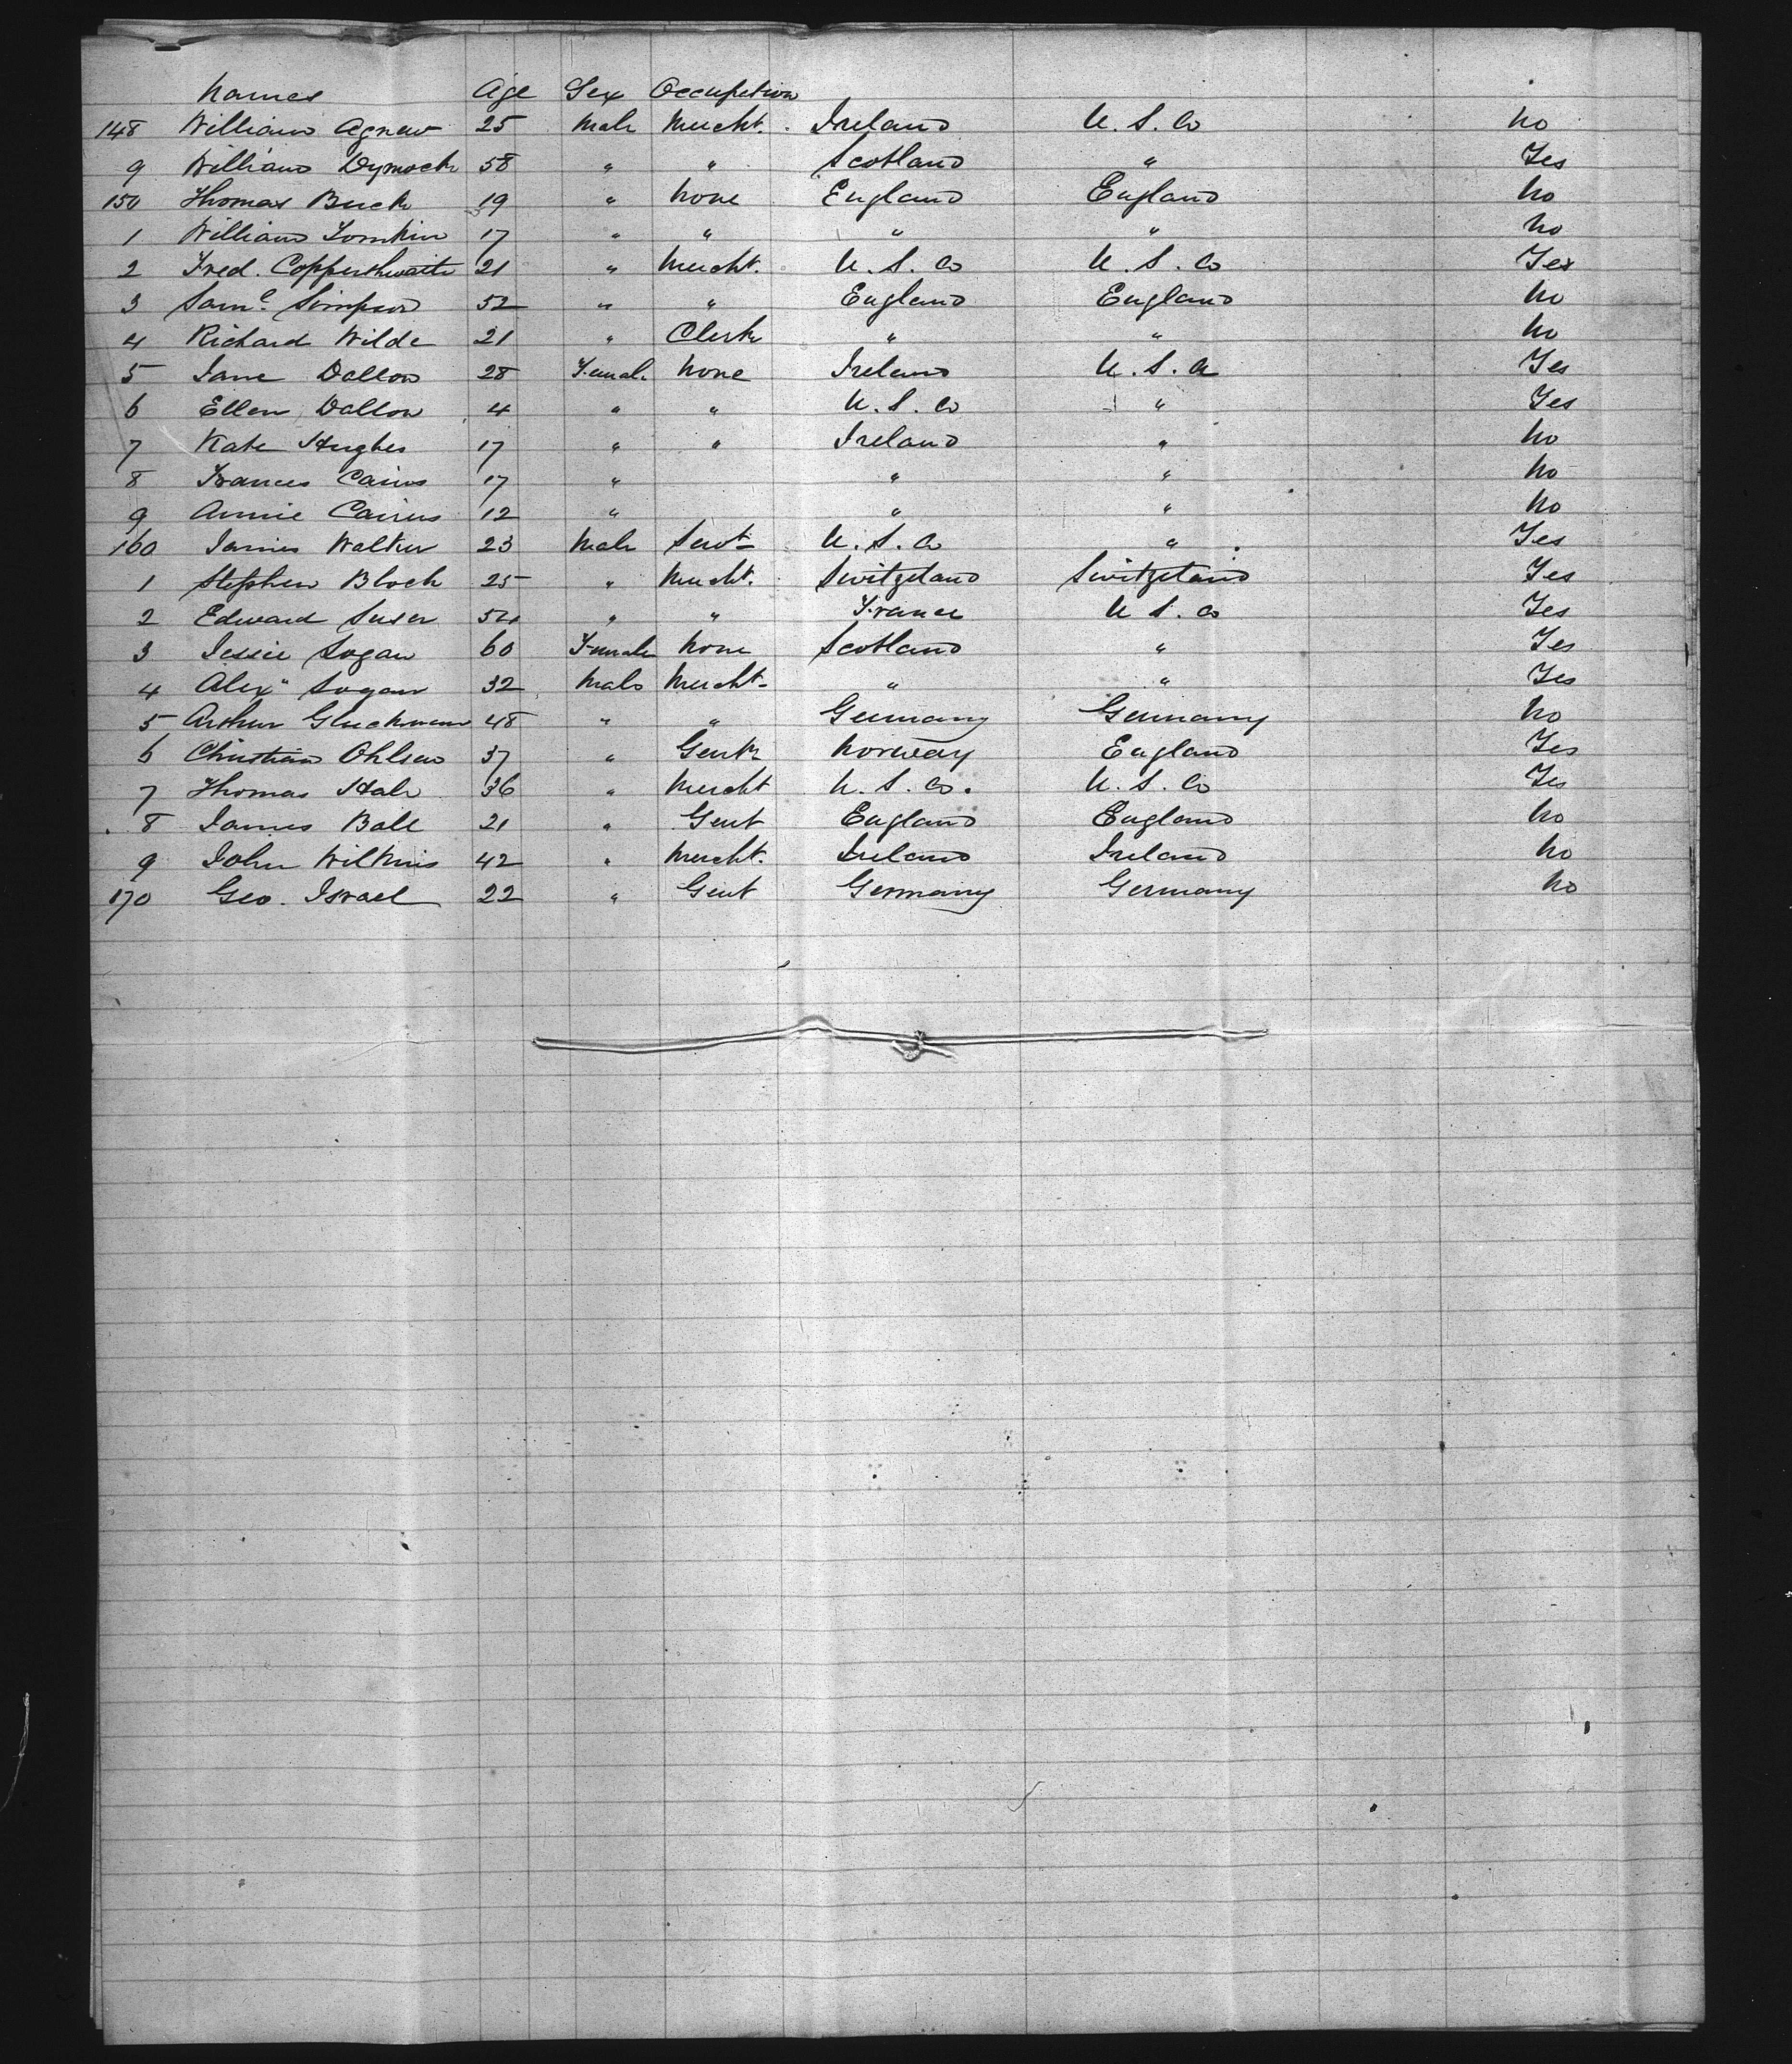 Names Age Sex Occupation
148 William Agnew 25 Male Mercht. Ireland U.S.A No
9 William Dymock 58 " " Scotland " Yes
150 Thomas Buck 19 " None England England No
1 William Tomkin 17 " " " " No
2 Fred. Copperthwaite 21 " Mercht. U.S.A U.S.A Yes
3 Saml. Simpson 52 " " England England No
4 Richard Wilde 21 " Clerk " " No
5 Jane Dallon 28 Female None Ireland U.S.A Yes
6 Ellen Dallon 4 " " U.S.A " Yes
7 Kate Hughes 17 " " Ireland " No
8 Frances Cairns 17 " " " No
9 Annie Cairns 12 " " " No
160 James Walker 23 Male Servt U.S.A " Yes
1 Stephen Bloch 25 " Mercht. Switzeland Switzeland Yes
2 Edward 54 " " France U.S.A Yes
3 Jessie Logan 60 Female None Scotland " Yes
4 Alex" Logan 32 Male Mercht " " Yes
5 Arthur Gluckman 48 " " Germany Germany No
6 Christian Ohlsen 37 " Gentn Norway England Yes
7 Thomas Hale 36 " Mercht U.S.A. U.S.A Yes
8 James Ball 21 " Gent England England No
9 John Wilkins 42 " Mercht. Ireland Ireland No
170 Geo. Israel 22 " Gent Germany Germany No